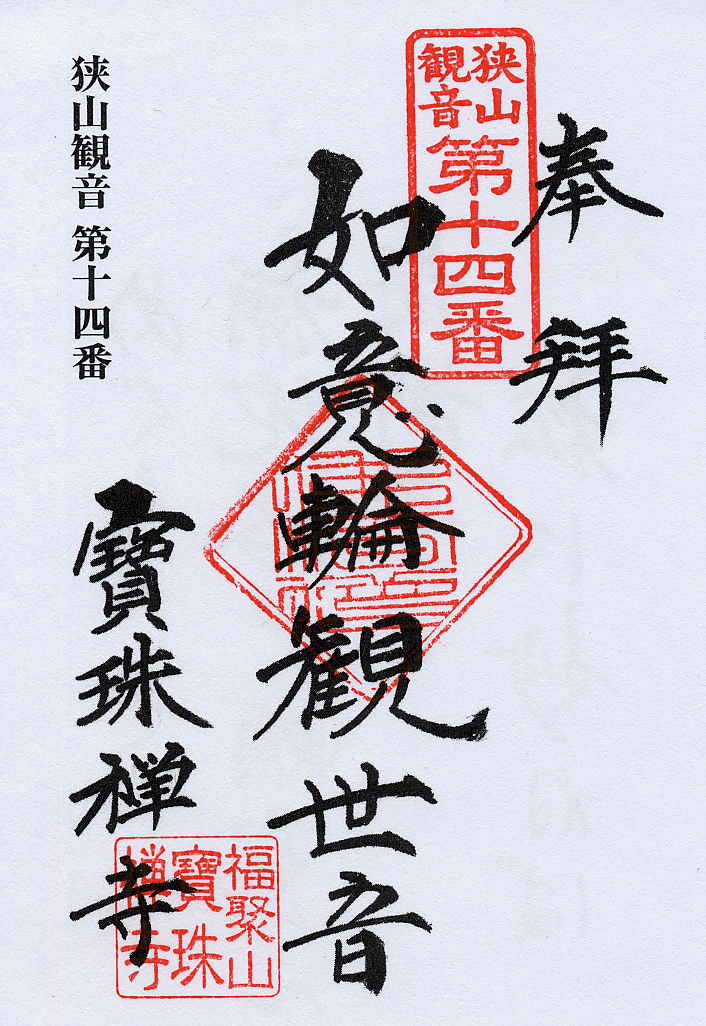 奉拝
狭山
観音
第十四番
如意輪観世音
寳珠禅寺
福聚山
寳珠
禅寺
狭山観音 第十四番